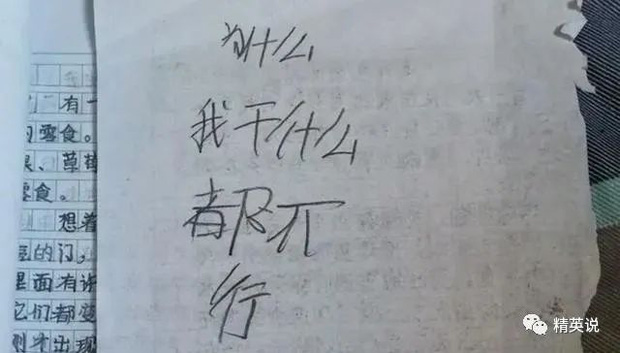 为什么
我干什么
都不
行
有一
零食。
、草莓
零食。
想着
的门,
里面有许
它们都变
刚才出现
精英说